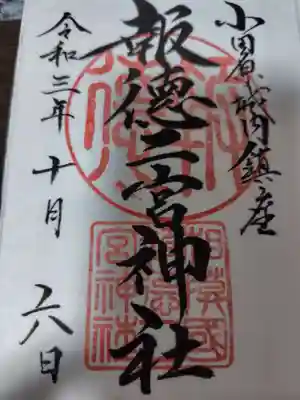 小田原城内鎮座
報徳二宮神社
令和三年十月六日